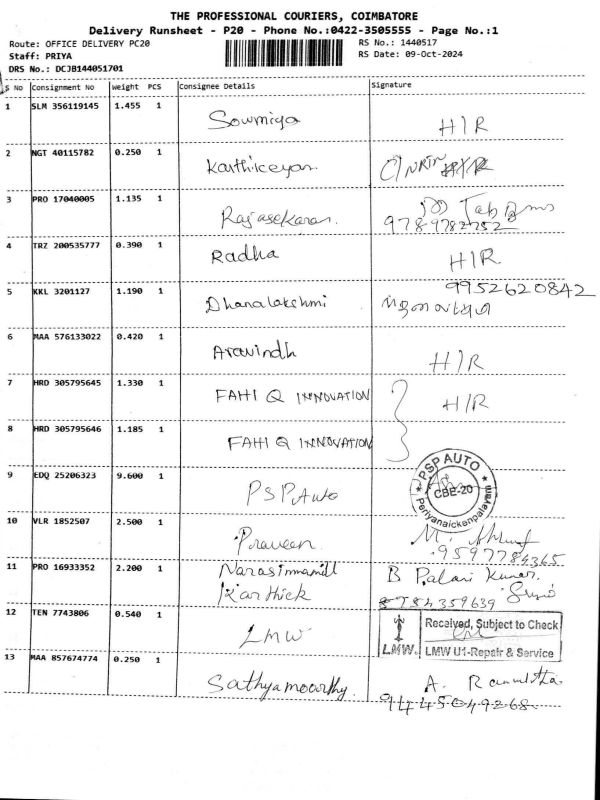 THE PROFESSIONAL COURIERS, COIMBATORE
Delivery Runsheet - P20 - Phone No.:0422-3505555 - Page No.:1
Route: OFFICE DELIVERY PC20
RS No.: 1440517
Staff: PRIYA
RS Date: 09-Oct-2024
DRS No.: DCJB144051701
S No Consignment No Weight PCS Consignee Details Signature
1 SLM 356119145 1.455 1 Sowmiya H/R
2 NGT 40115782 0.250 1 Karthikeyan
3 PRO 17040005 1.135 1 Rajasekaran.
9789782752
4 TRZ 200535777 0.390 1 Radha H/R
9952620842
5 KKL 3201127 1.190 1 Dhanalakshmi
6 MAA 576133022 0.420 1 Aravindh H/R
7 HRD 305795645 1.330 1 FAHI Q INNOVATION H/R
8 HRD 305795646 1.185 1 FAHI Q INNOVATION
9 EDQ 25206323 9.600 1 PSP Auto
PSP AUTO
CBE-20
Periyanaickenpalayam
10 VLR 1852507 2.500 1 Praveen. M.
9597784365
11 PRO 16933352 2.200 1 B Palani Kumar.
Karthick 8754359639
12 TEN 7743806 0.540 1 LMW
Received, Subject to Check
LMW. LMW U1-Repair & Service
13 MAA 857674774 0.250 1 Sathyamoorthy. A.
9445049268